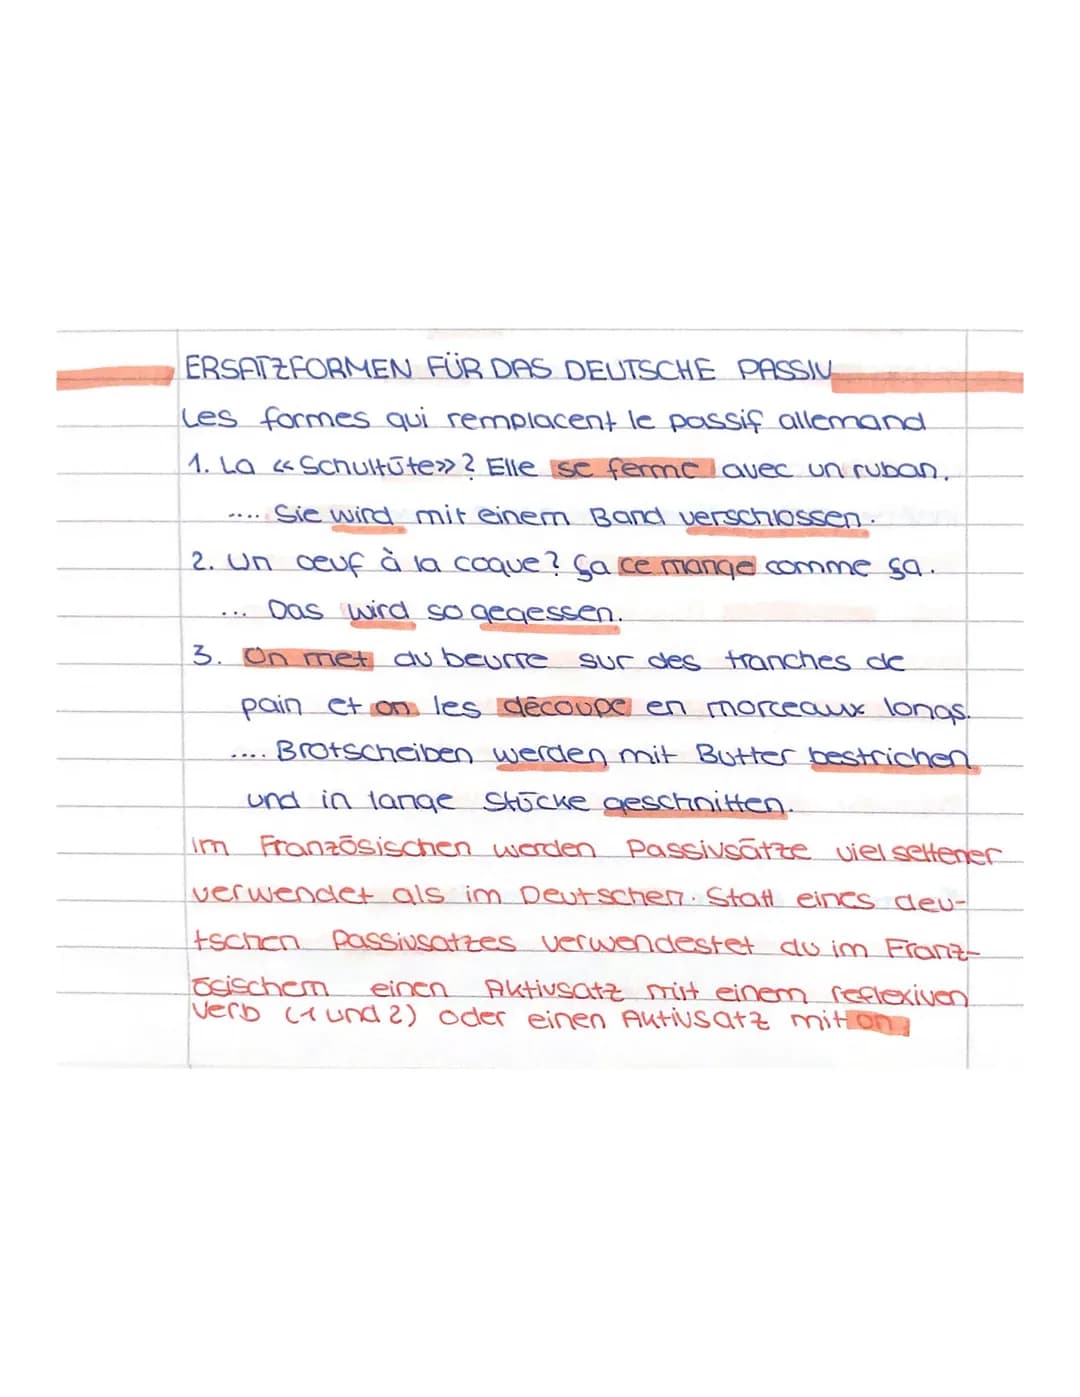 ERSATZFORMEN FÜR DAS DEUTSCHE PASSIV
Les formes qui remplacent le passif allemand
1. La «Schultüte»? Elle se ferme avec un ruban.
.... Sie wird mit einem Band verschlossen.
2. Un oeuf à la coque? Ça ce mange comme ça.
... Das wird so gegessen.
3. On met du beurre sur des tranches de
pain et on les découpe en morceaux longs.
.... Brotscheiben werden mit Butter bestrichen
und in lange Stücke geschnitten.
Im Französischen werden Passivsätze viel seltener
verwendet als im Deutschen. Statt eines deu-
tschen Passivsatzes verwendestet du im Franz-
ösischem einen Aktivsatz mit einem reflexiven
Verb (1 und 2) oder einen Aktivsatz mit on